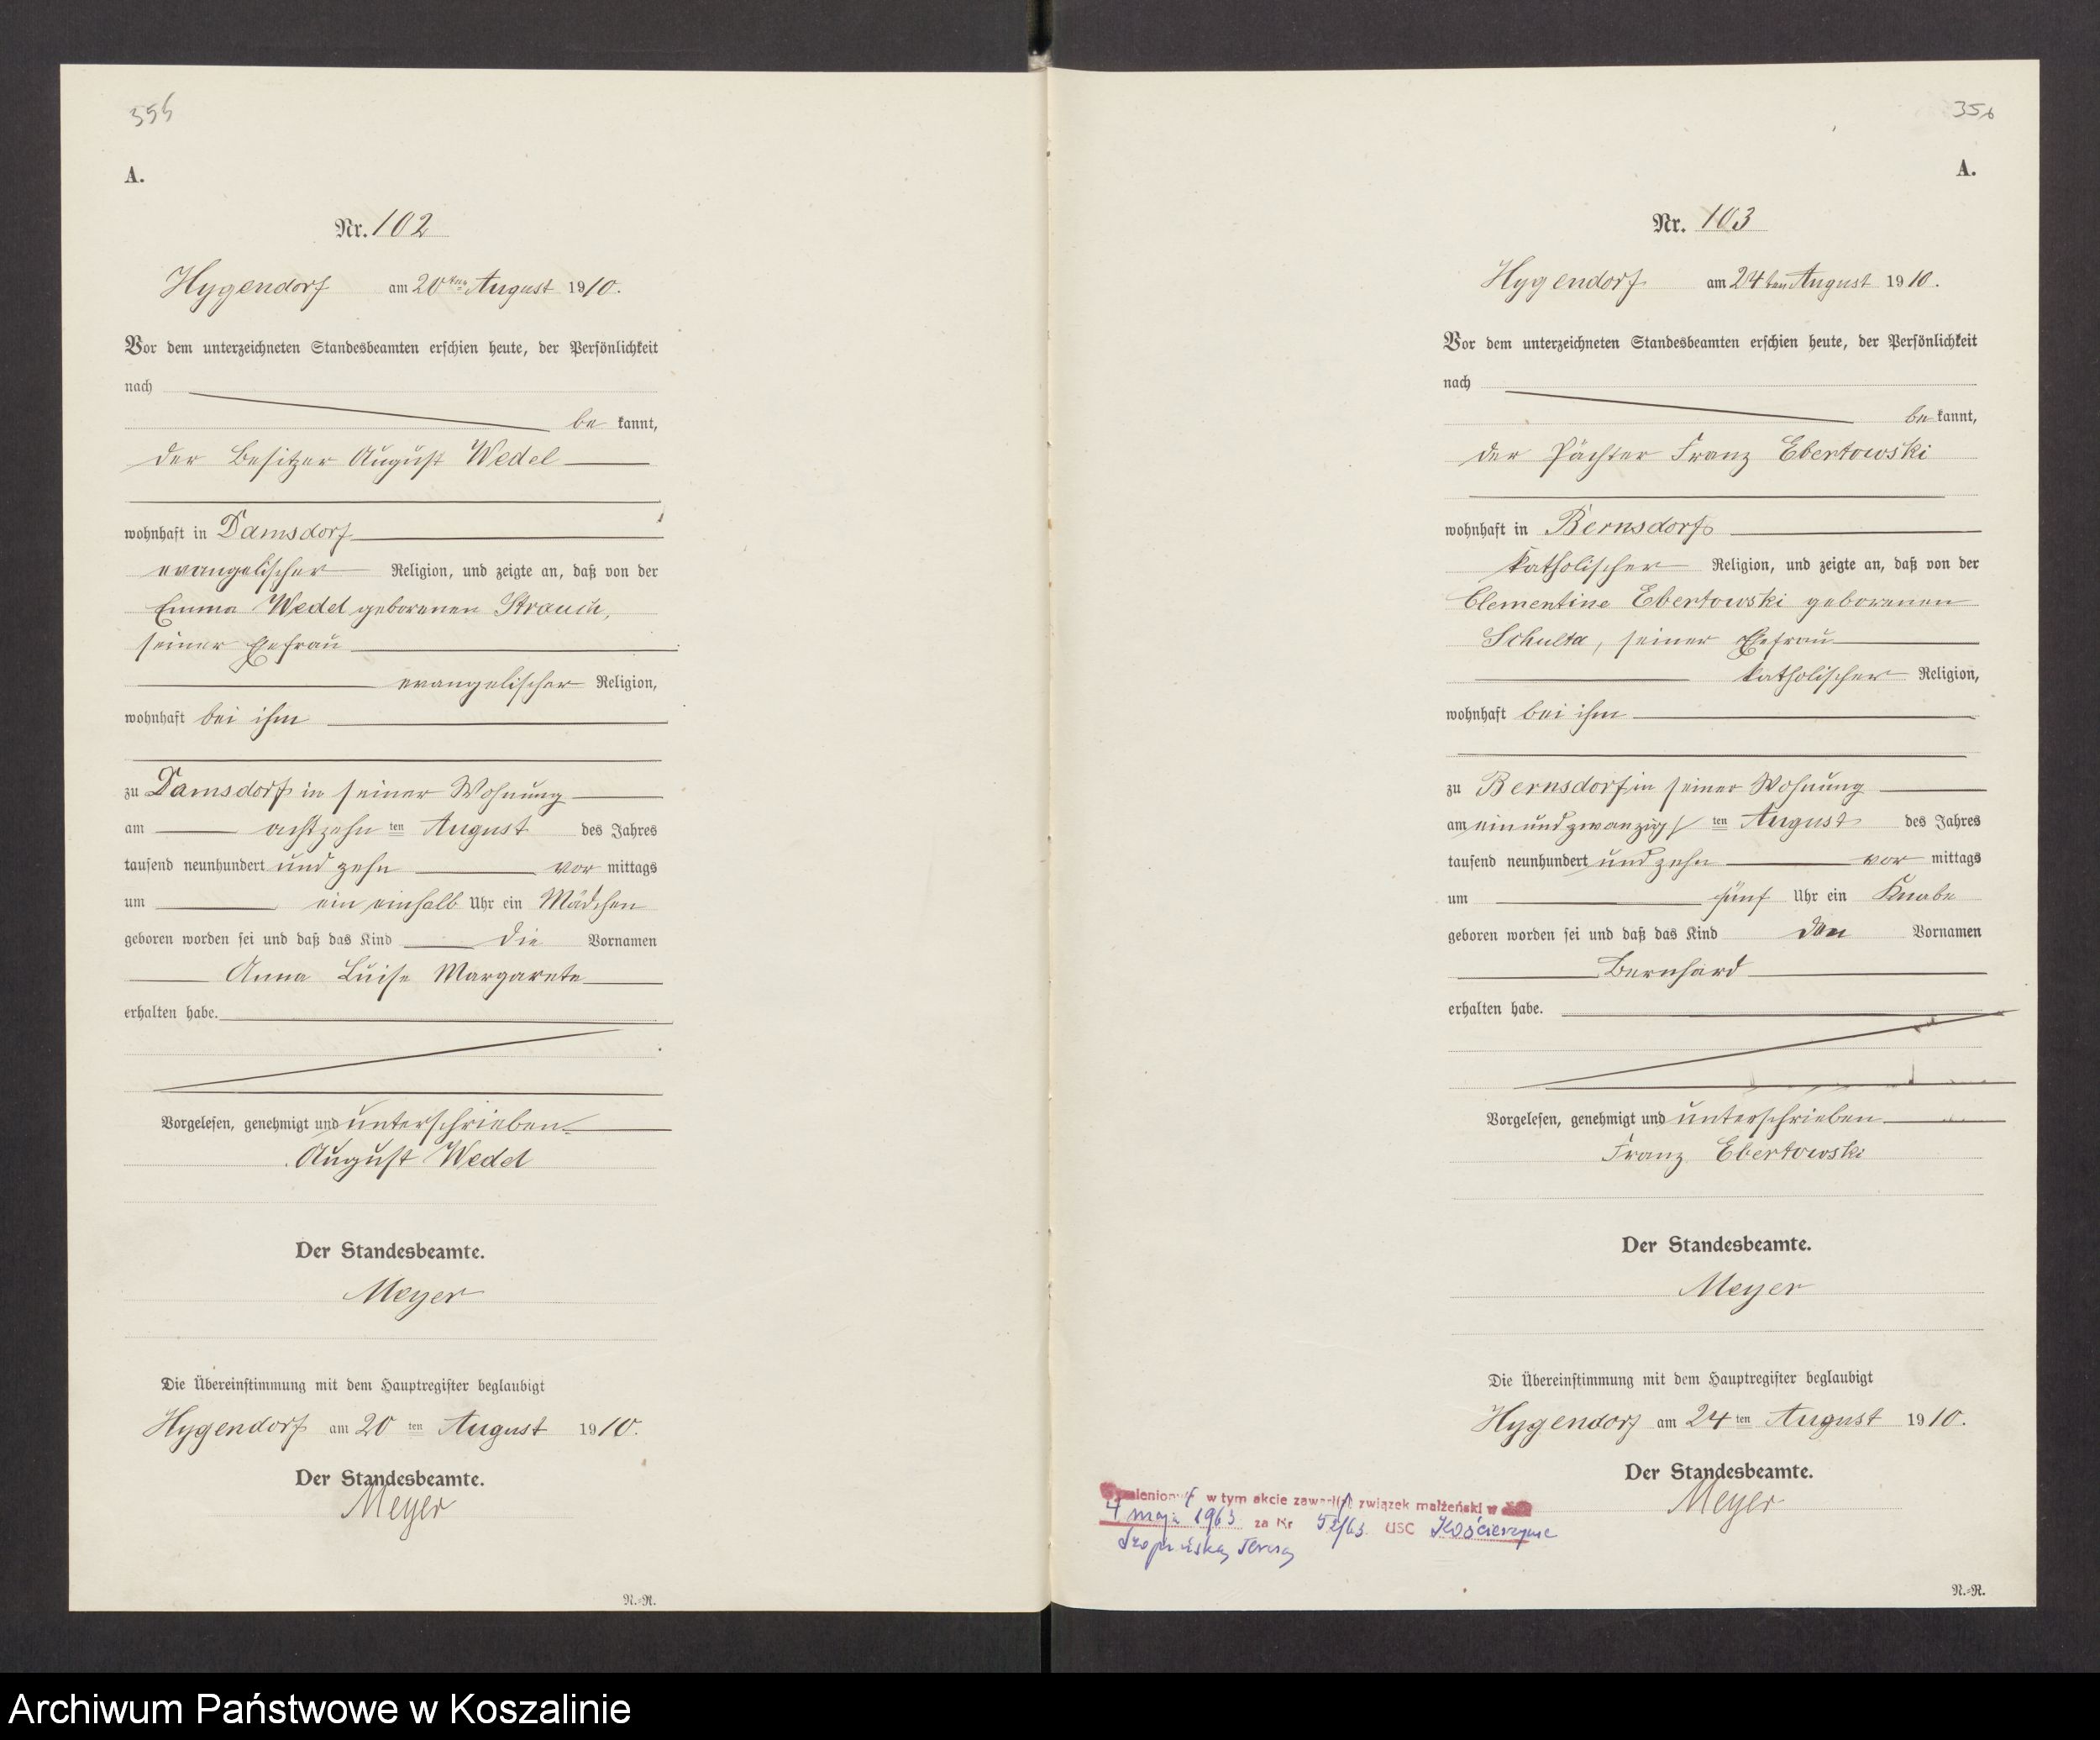 355
A.
Nr. 102
Hygendorf am 20ten August 1910.
Vor dem unterzeichneten Standesbeamten erschien heute, der Persönlichkeit
nach
be kannt,
der Besitzer August Wedel
wohnhaft in Damsdorf
evangelischer Religion, und zeigte an, daß von der
Emma Wedel geborenen Strauch,
seiner Ehefrau
evangelischer Religion,
wohnhaft bei ihm
zu Damsdorf in seiner Wohnung
am achtzehn ten August des Jahres
tausend neunhundert und zehn vor mittags
um ein einhalb Uhr ein Mädchen
geboren worden sei und daß das Kind die Vornamen
Anna Luise Margarete
erhalten habe.
Vorgelesen, genehmigt und unterschrieben
August Wedel
Der Standesbeamte.
Meyer
Die Übereinstimmung mit dem Hauptregister beglaubigt
Hygendorf am 20 ten August 1910.
Der Standesbeamte.
Meyer
N.-R.
356
A.
Nr. 103
Hygendorf am 24ten August 1910.
Vor dem unterzeichneten Standesbeamten erschien heute, der Persönlichkeit
nach
be kannt,
der Pächter Franz Ebertowski
wohnhaft in Bernsdorf
katholischer Religion, und zeigte an, daß von der
Clementine Ebertowski geborenen
Schulta, seiner Ehefrau
katholischer Religion,
wohnhaft bei ihm
zu Bernsdorf in seiner Wohnung
am einundzwanzigs ten August des Jahres
tausend neunhundert und zehn vor mittags
um fünf Uhr ein Knabe
geboren worden sei und daß das Kind den Vornamen
Bernhard
erhalten habe.
Vorgelesen, genehmigt und unterschrieben
Franz Ebertowski
Der Standesbeamte.
Meyer
Die Übereinstimmung mit dem Hauptregister beglaubigt
Hygendorf am 24 ten August 1910.
Der Standesbeamte.
Meyer
w tym akcie zawarł związek małżeński w
4 maja 1963 za Nr 52/63 USC Kościerzyna
N.-R.
Archiwum Państwowe w Koszalinie